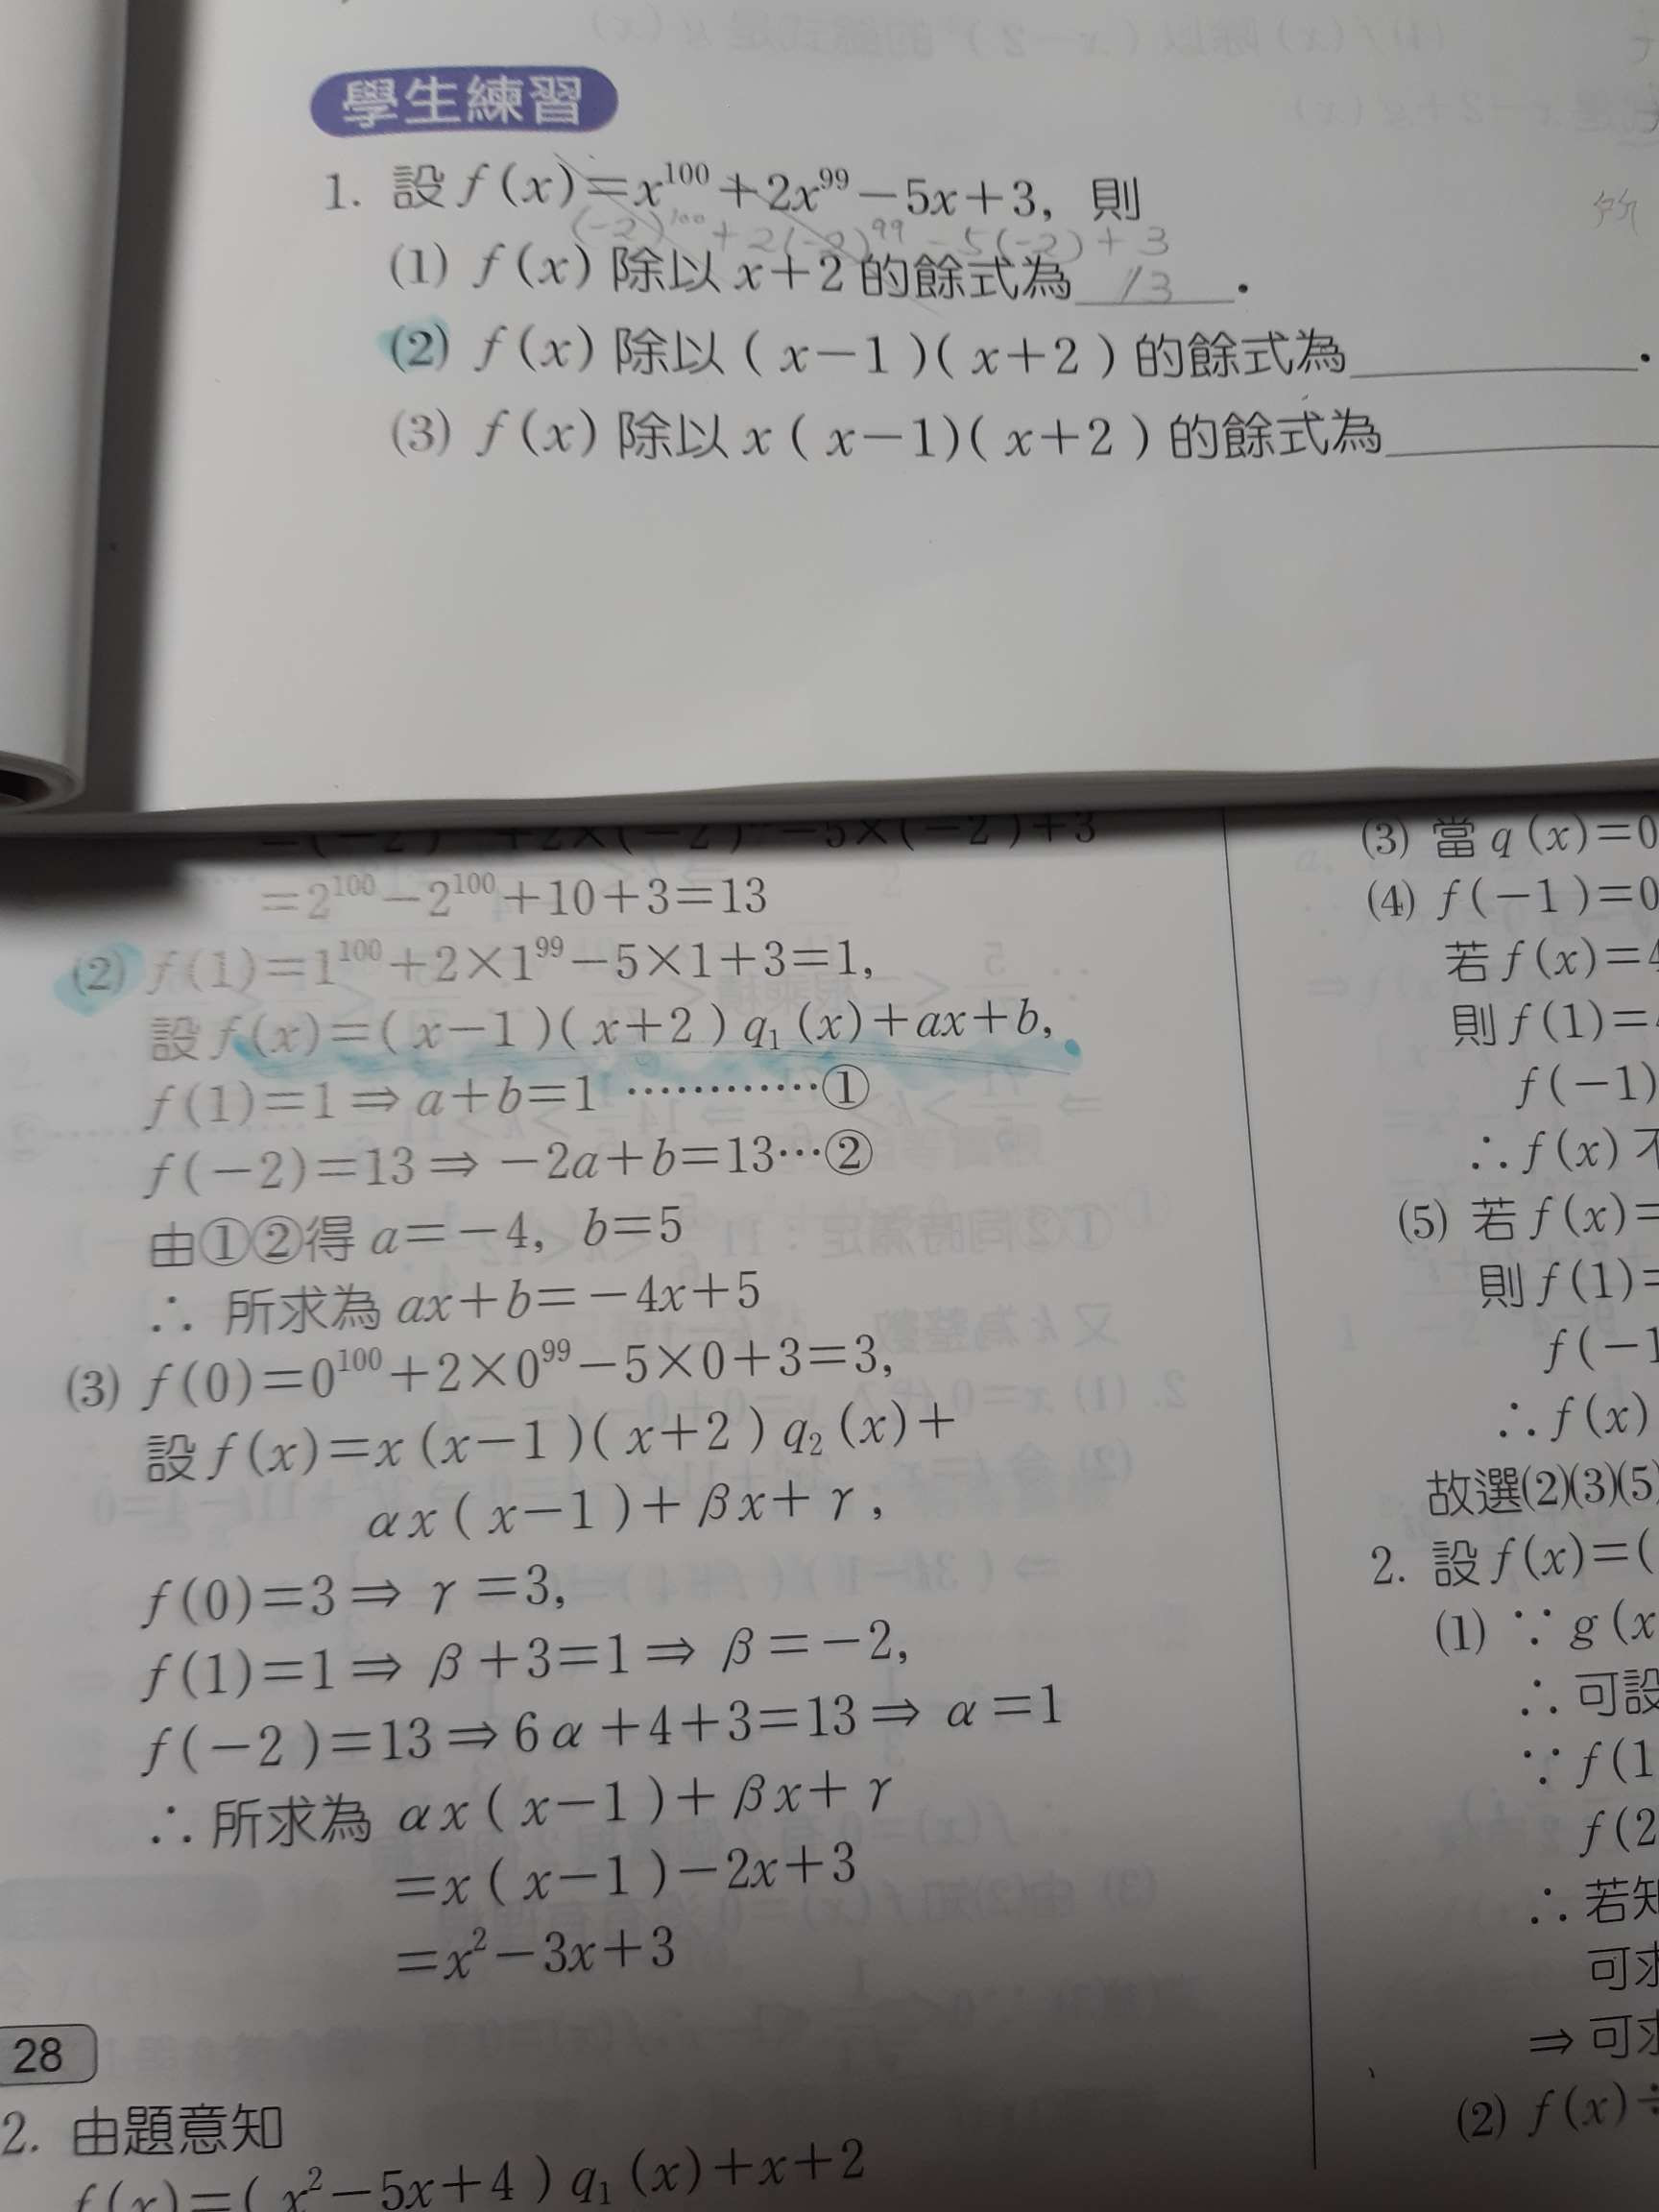 學生練習
1. 設 f(x)=x¹⁰⁰+2x⁹⁹−5x+3, 則
(−2)¹⁰⁰+2(−2)⁹⁹−5(−2)+3
(1) f(x) 除以 x+2 的餘式為 13 .
(2) f(x) 除以 (x−1)(x+2) 的餘式為 .
(3) f(x) 除以 x(x−1)(x+2) 的餘式為
+2×(−2) −5×(−2)+3
=2¹⁰⁰−2¹⁰⁰+10+3=13
(2) f(1)=1¹⁰⁰+2×1⁹⁹−5×1+3=1,
設 f(x)=(x−1)(x+2)q₁(x)+ax+b,
f(1)=1⇒a+b=1 …………①
f(−2)=13⇒−2a+b=13…②
由①②得 a=−4, b=5
∴ 所求為 ax+b=−4x+5
(3) f(0)=0¹⁰⁰+2×0⁹⁹−5×0+3=3,
設 f(x)=x(x−1)(x+2)q₂(x)+
αx(x−1)+βx+γ,
f(0)=3⇒ γ=3,
f(1)=1⇒ β+3=1⇒ β=−2,
f(−2)=13⇒6α+4+3=13⇒ α=1
∴ 所求為 αx(x−1)+βx+γ
=x(x−1)−2x+3
=x²−3x+3
28
2. 由題意知
f(x)=(x²−5x+4)q₁(x)+x+2
(3) 當 q(x)=0
(4) f(−1)=0
若 f(x)=4
則 f(1)=
f(−1)
∴f(x) 不
(5) 若 f(x)=
則 f(1)=
f(−1
∴f(x)
故選(2)(3)(5)
2. 設 f(x)=(
(1) ∵ g(x
∴ 可設
∵ f(1
f(2
∴ 若知
可求
⇒ 可求
(2) f(x)÷